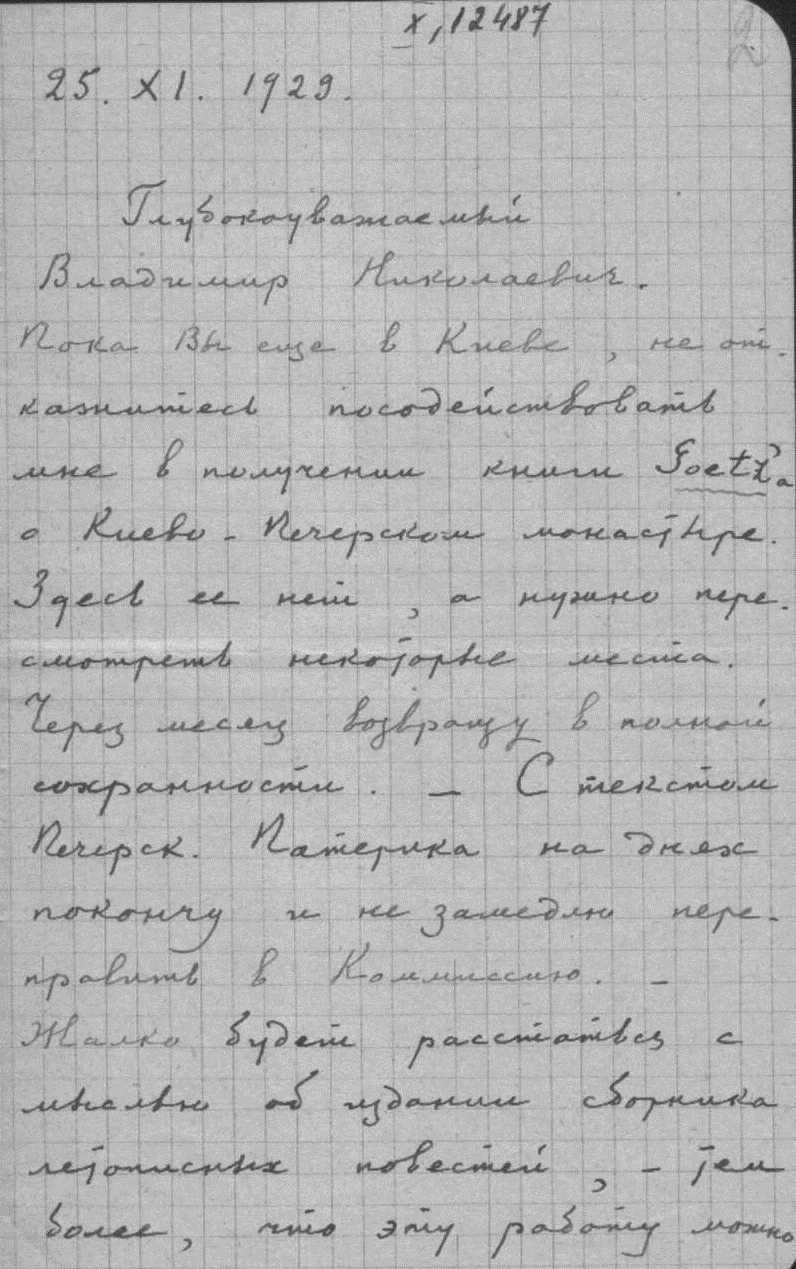 X, 12487
2
25. XI. 1929.
Глубокоуважаемый
Владимир Николаевич.
Пока Вы еще в Киеве, не от-
кажитесь посодействовать
мне в получении книги Goetz'a
о Киево-Печерском монастыре.
Здесь ее нет, а нужно пере-
смотреть некоторые места.
Через месяц возвращу в полной
сохранности. — С текстом
Печерск. Патерика на днях
покончу и не замедлю пере-
править в Коммиссию. —
Жалко будет расстаться с
мыслью об издании сборника
летописных повестей, — тем
более, что эту работу можно